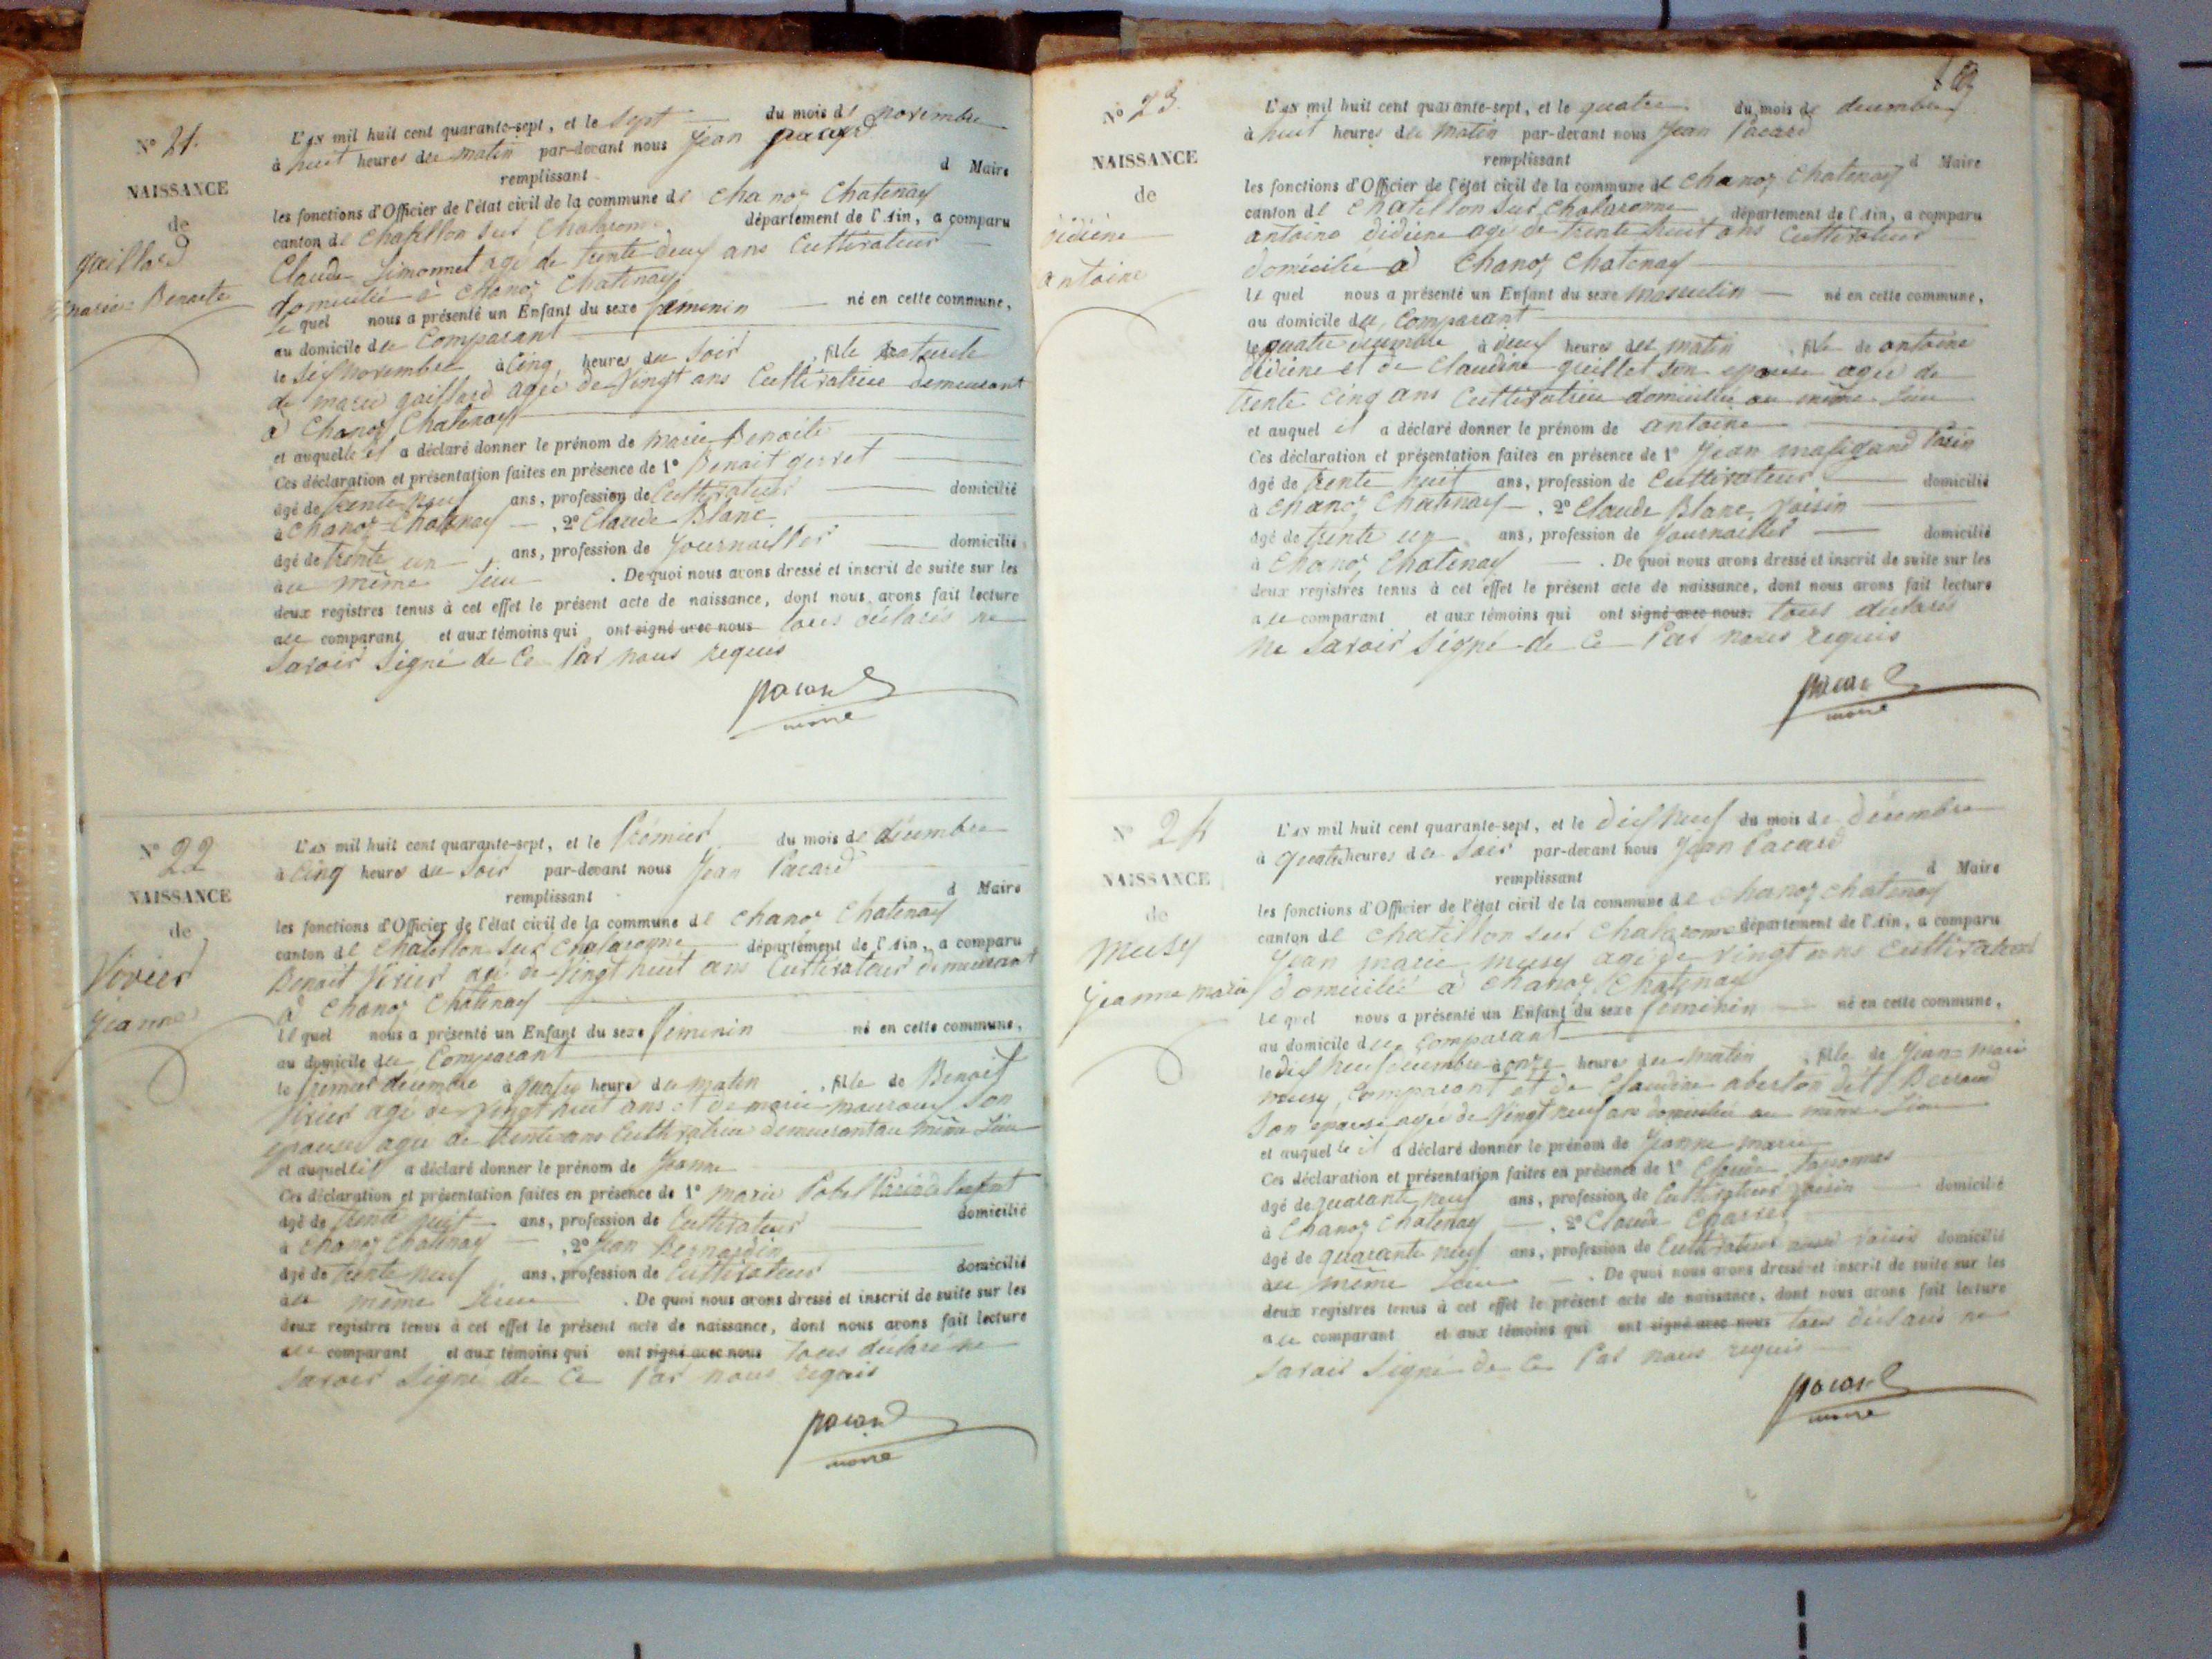 N° 21.
NAISSANCE
de
gaillard
Marie Benoite
L'an mil huit cent quarante-sept, et le sept du mois de novembre
à huit heures du matin par-devant nous Jean pacard
remplissant d Maire
les fonctions d'Officier de l'état civil de la commune de Chanoz Chatenay
canton de Chatillon sur Chalaronne département de l'Ain, a comparu
Claude Simonnet agé de trente deux ans Cultivateur
domicilié à Chanoz Chatenay
le quel nous a présenté un Enfant du sexe féminin né en cette commune,
au domicile du Comparant
le six novembre à Cinq heures du Soir, fille naturele
de marie gaillard agée de Vingt ans Cultivatrice demeurant
à Chanoz Chatenay
et auquelle il a déclaré donner le prénom de marie Benoite
Ces déclaration et présentation faites en présence de 1° Benoit gerret
âgé de trente neuf ans, profession de Cultivateur domicilié
à Chanoz-Chatenay, 2° Claude Blanc
âgé de trente un ans, profession de Journaillier domicilié
au même Lieu. De quoi nous avons dressé et inscrit de suite sur les
deux registres tenus à cet effet le présent acte de naissance, dont nous avons fait lecture
au comparant et aux témoins qui ont signé avec nous tous déclarés ne
Savoir Signé de Ce Par nous requis
pacard
maire
N° 22
NAISSANCE
de
Vivier
Jeanne
L'an mil huit cent quarante-sept, et le Prémier du mois de décembre
à Cinq heures du Soir par-devant nous Jean Pacard
remplissant d Maire
les fonctions d'Officier de l'état civil de la commune de Chanoz Chatenay
canton de Chatillon sur Chalaronne département de l'Ain, a comparu
Benoit Vivier agé de Vingt huit ans Cultivateur demeurant
à Chanoz Chatenay
le quel nous a présenté un Enfant du sexe féminin né en cette commune,
au domicile du Comparant
le Premier décembre à quatre heures du matin, fille de Benoit
Vivier agé de Vingt huit ans et de marie Son
epouse agée de trente ans Cultivatrice demeurant au même Lieu
et auquelle il a déclaré donner le prénom de Jeanne
Ces déclaration et présentation faites en présence de 1° marie Pobel
âgé de trente huit ans, profession de Cultivateur domicilié
à Chanoz Chatenay, 2° Jean Bernardin
âgé de trente neuf ans, profession de Cultivateur domicilié
au même Lieu. De quoi nous avons dressé et inscrit de suite sur les
deux registres tenus à cet effet le présent acte de naissance, dont nous avons fait lecture
au comparant et aux témoins qui ont signé avec nous Tous déclaré ne
Savoir Signé de Ce Par nous requis
pacard
maire
N° 23.
NAISSANCE
de
didiene
antoine
L'an mil huit cent quarante-sept, et le quatre du mois de decembre
à huit heures du Matin par-devant nous Jean Pacard
remplissant d Maire
les fonctions d'Officier de l'état civil de la commune de Chanoz Chatenay
canton de Chatillon sur Chalaronne département de l'Ain, a comparu
antoine didiene agé de trente huit ans Cultivateur
domicilié à Chanoz Chatenay
le quel nous a présenté un Enfant du sexe masculin né en cette commune,
au domicile du Comparant
le quatre décembre à deux heures du matin, fils de antoine
didiene et de Claudine guillet son epouse agée de
trente Cinq ans Cultivatrice domiciliée au même Lieu
et auquel il a déclaré donner le prénom de antoine
Ces déclaration et présentation faites en présence de 1° Jean
âgé de trente huit ans, profession de Cultivateur domicilié
à Chanoz Chatenay, 2° Claude Blanc Voisin
âgé de trente un ans, profession de Journaillier domicilié
à Chanoz Chatenay. De quoi nous avons dressé et inscrit de suite sur les
deux registres tenus à cet effet le présent acte de naissance, dont nous avons fait lecture
au comparant et aux témoins qui ont signé avec nous. tous declarés
ne Savoir Signé de Ce Par nous requis
pacard
maire
N° 24
NAISSANCE
de
Musy
Jeanne marie
L'an mil huit cent quarante-sept, et le dix neuf du mois de décembre
à quatre heures du Soir par-devant nous Jean Pacard
remplissant d Maire
les fonctions d'Officier de l'état civil de la commune de Chanoz Chatenay
canton de Chatillon sur Chalaronne département de l'Ain, a comparu
Jean marie musy agé de Vingt ans Cultivateur
domicilié à Chanoz Chatenay
le quel nous a présenté un Enfant du sexe féminin né en cette commune,
au domicile du Comparant
le dix neuf decembre à onze heures du matin, fille de Jean-marie
musy Comparant et de Claudine aberton dit Berraud
Son épouse agée de Vingt neuf ans domiciliée au même Lieu
et auquel le il a déclaré donner le prénom de Jeanne marie
Ces déclaration et présentation faites en présence de 1° Claude
âgé de quarante neuf ans, profession de Cultivateur voisin domicilié
à Chanoz Chatenay, 2° Claude
âgé de quarante neuf ans, profession de Cultivateur aussi voisin domicilié
au même Lieu. De quoi nous avons dressé et inscrit de suite sur les
deux registres tenus à cet effet le présent acte de naissance, dont nous avons fait lecture
au comparant et aux témoins qui ont signé avec nous tous déclarés ne
Savoir Signé de Ce Par nous requis
pacard
maire